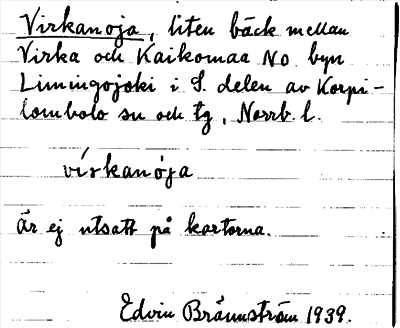 Virkanoja, liten bäck mellan
Virka och Kaikomaa NO byn
Limingojoki i S. delen av Korpi-
lombolo sn och tg, Norrb. l.
vírkanòja
Är ej utsatt på kartorna.
Edvin Brännström 1939.